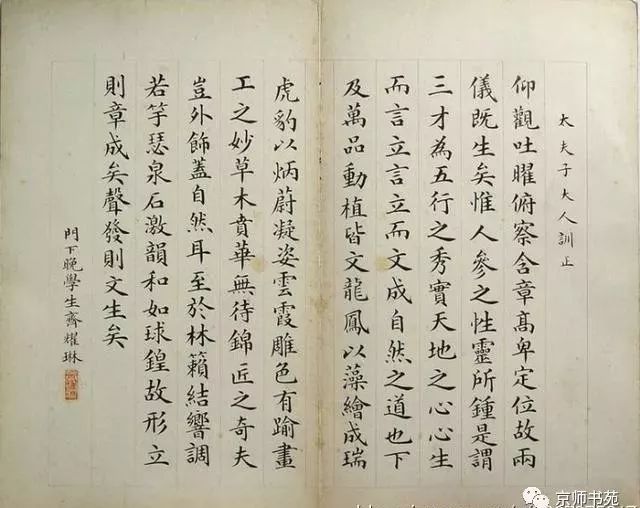 太夫子大人訓正
仰觀吐曜俯察含章高卑定位故兩
儀既生矣惟人參之性靈所鍾是謂
三才為五行之秀實天地之心心生
而言立言立而文成自然之道也下
及萬品動植皆文龍鳳以藻繪成瑞
虎豹以炳蔚凝姿雲霞雕色有踰畫
工之妙草木賁華無待錦匠之奇夫
豈外飾蓋自然耳至於林籟結響調
若竽瑟泉石激韻和如球鍠故形立
則章成矣聲發則文生矣
門下晚學生齊耀琳
京师书苑